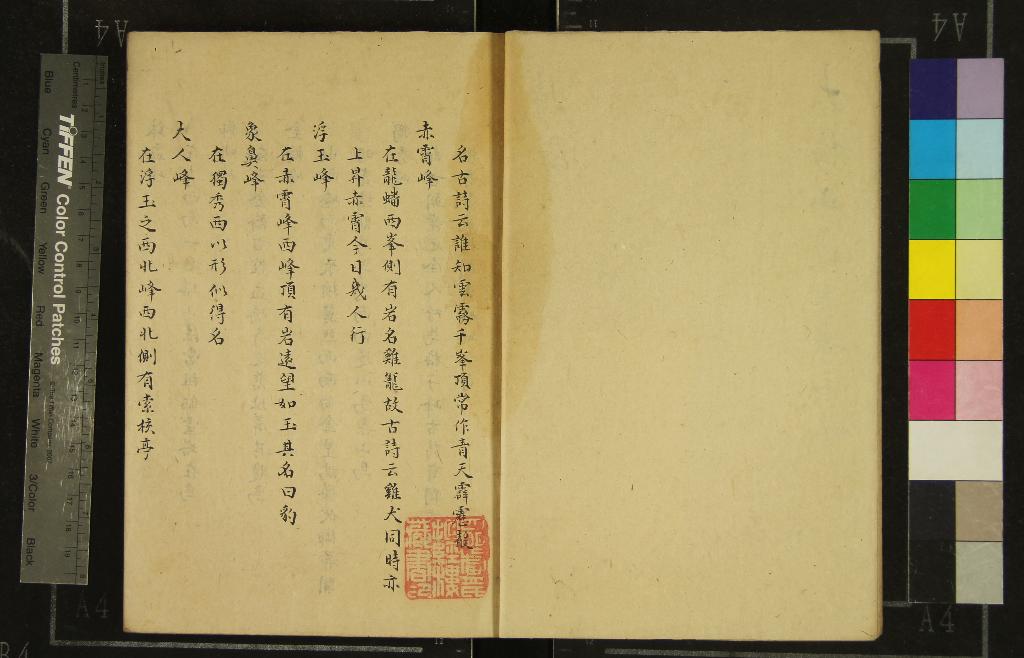 名古詩云誰知雲霧千峯頂常作青天霹靂聲
赤霄峰
在龍蟠西峯側有岩名雞籠故古詩云雞犬同時亦
上昇赤霄今日幾人行
浮玉峰
在赤霄峰西峰頂有岩遠望如玉其名曰豹
象鼻峰
在獨秀西以形似得名
大人峰
在浮玉之西北峰西北側有索棪亭
藏書記
TIFFEN Color Control Patches
Centimetres
Inches
Blue
Cyan
Green
Yellow
Red
Magenta
White
3/Color
Black
A4
A4
A4
A4
B4